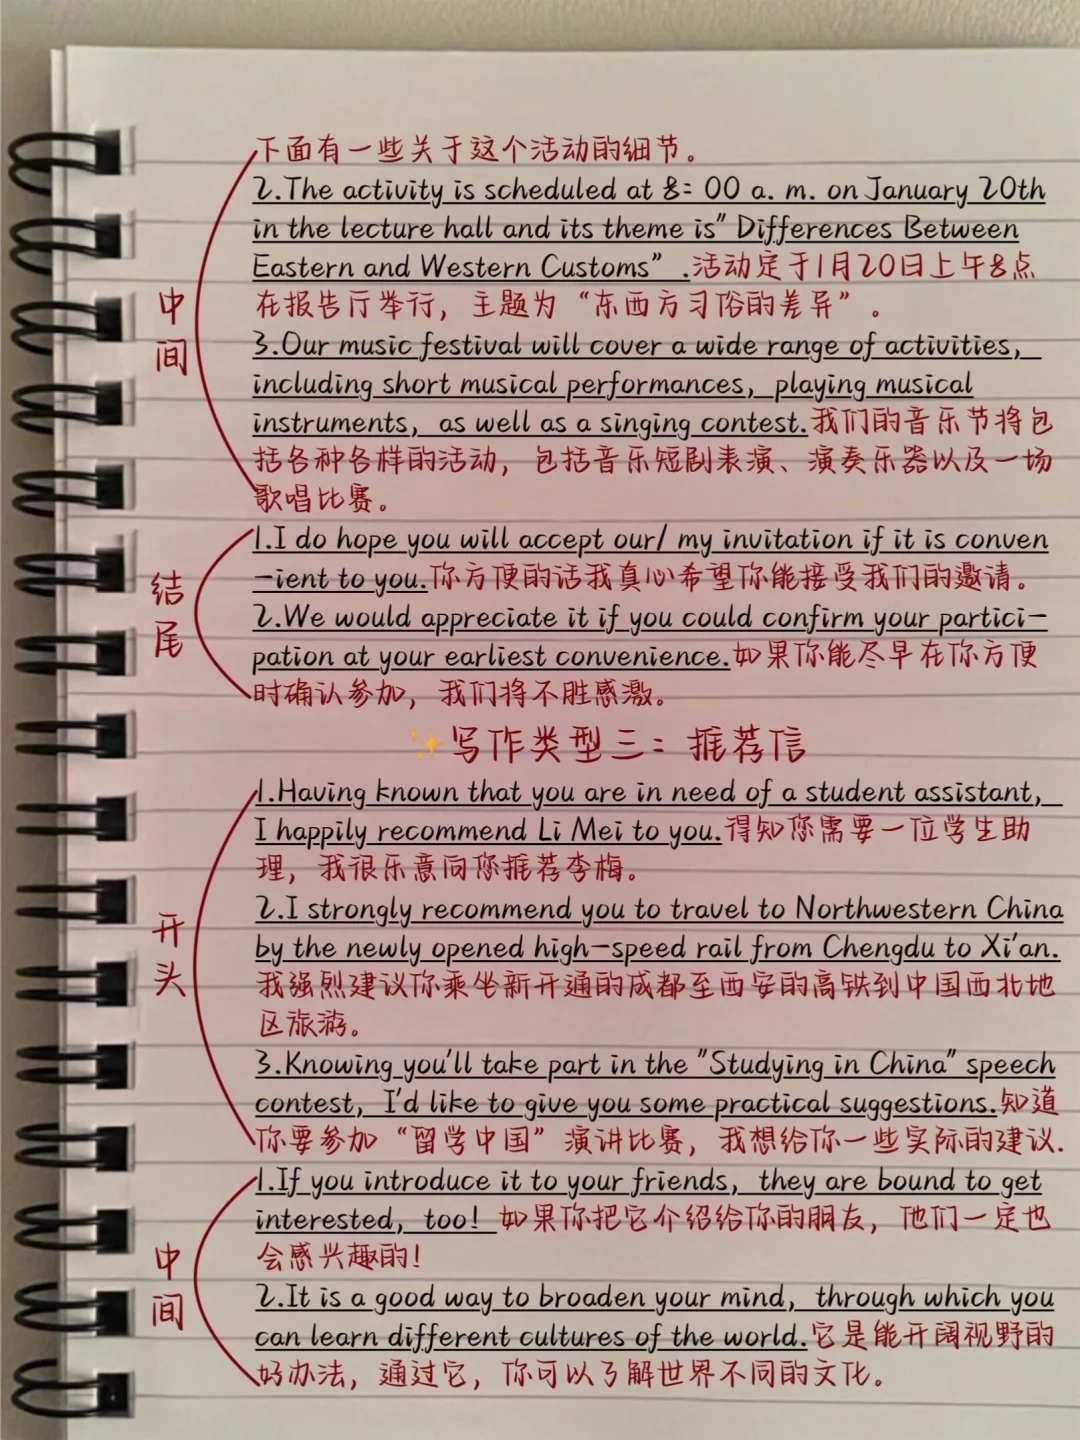 下面有一些关于这个活动的细节。
2.The activity is scheduled at 8：00 a. m. on January 20th
in the lecture hall and its theme is" Differences Between
Eastern and Western Customs" .活动定于1月20日上午8点
在报告厅举行，主题为“东西方习俗的差异”。
中间
3.Our music festival will cover a wide range of activities,
including short musical performances, playing musical
instruments, as well as a singing contest.我们的音乐节将包
括各种各样的活动，包括音乐短剧表演、演奏乐器以及一场
歌唱比赛。
1.I do hope you will accept our/ my invitation if it is conven
-ient to you.你方便的话我真心希望你能接受我们的邀请。
结尾
2.We would appreciate it if you could confirm your partici-
pation at your earliest convenience.如果你能尽早在你方便
时确认参加，我们将不胜感激。
✨写作类型三：推荐信
1.Having known that you are in need of a student assistant,
I happily recommend Li Mei to you.得知您需要一位学生助
理，我很乐意向您推荐李梅。
2.I strongly recommend you to travel to Northwestern China
by the newly opened high-speed rail from Chengdu to Xi'an.
开头
我强烈建议你乘坐新开通的成都至西安的高铁到中国西北地
区旅游。
3.Knowing you'll take part in the "Studying in China" speech
contest, I'd like to give you some practical suggestions.知道
你要参加“留学中国”演讲比赛，我想给你一些实际的建议.
1.If you introduce it to your friends, they are bound to get
interested, too! 如果你把它介绍给你的朋友，他们一定也
会感兴趣的!
中间
2.It is a good way to broaden your mind, through which you
can learn different cultures of the world.它是能开阔视野的
好办法，通过它，你可以了解世界不同的文化。